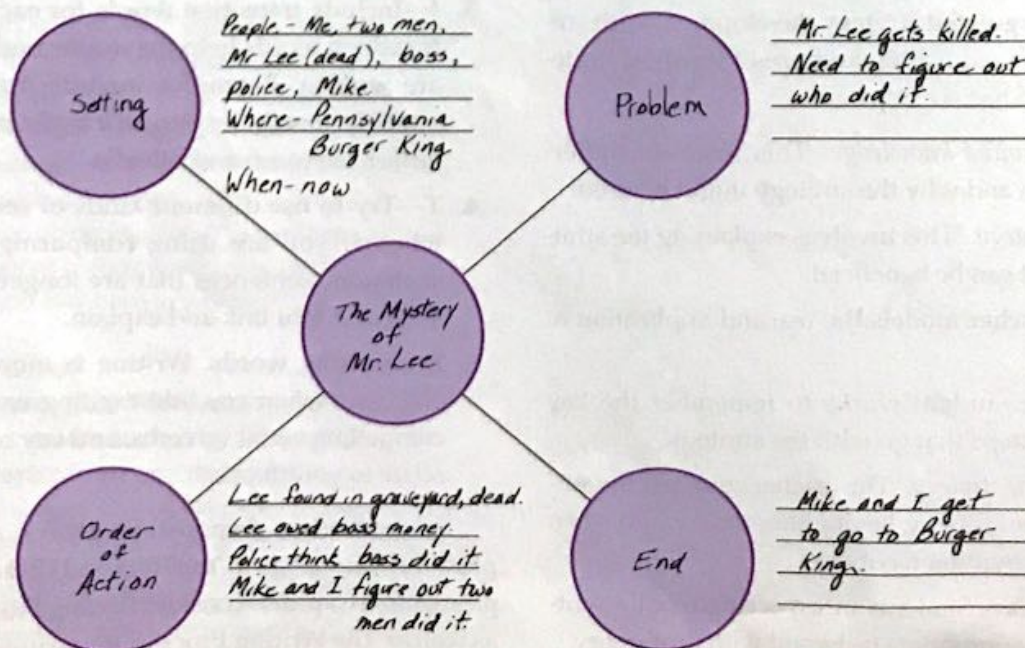 Setting
People - Me, two men,
Mr Lee (dead), boss,
police, Mike
Where - Pennsylvania
Burger King
When - now
Problem
Mr. Lee gets killed.
Need to figure out
who did it.
The Mystery
of
Mr. Lee
Order
of
Action
Lee found in graveyard, dead.
Lee owed boss money.
Police think boss did it.
Mike and I figure out two
men did it.
End
Mike and I get
to go to Burger
King.